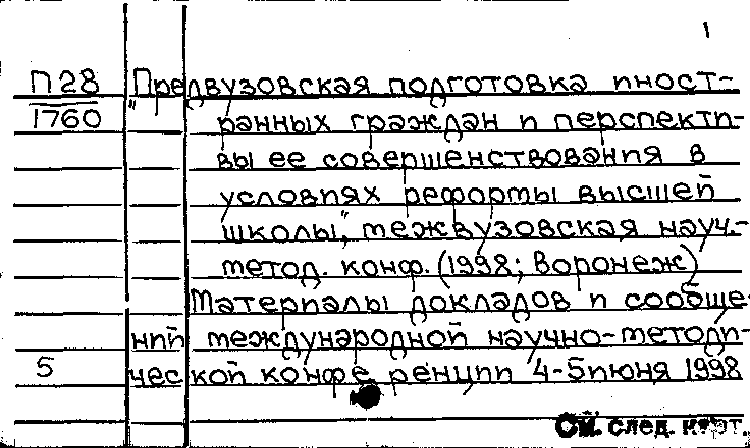 1
П28 "Предвузовская подготовка иност-
1760 ранных граждан и перспекти-
вы ее совершенствования в
условиях реформы высшей
школы", межвузовская науч.-
метод. конф. (1998; Воронеж)
Материалы докладов и сообще-
ний международной научно-методи-
5 ческой конференции 4-5 июня 1998
См. след. карт.